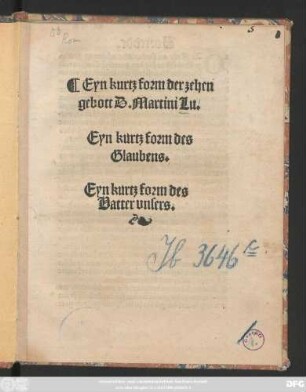 5
¶ Eyn kurtz form der zehen
gebott D. Martini Lu.
Eyn kurtz form des
Glaubens.
Eyn kurtz form des
Vatter vnsers.
Ib 3646